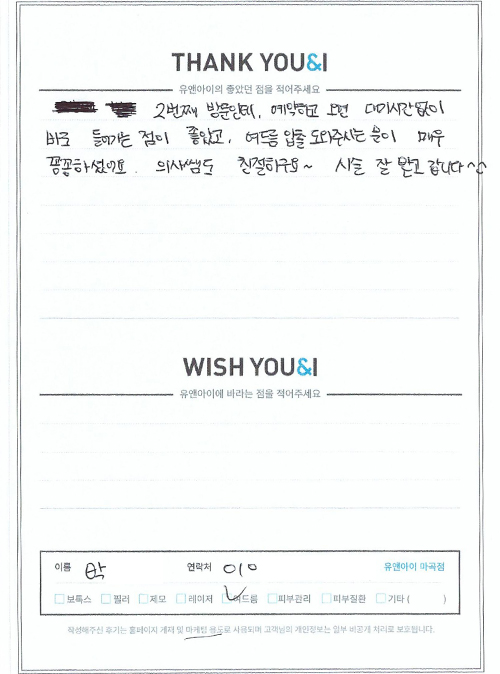 THANK YOU&I
유앤아이의 좋았던 점을 적어주세요
2번째 방문인데, 예약하고 오면 대기시간없이
바로 들어가는 점이 좋았고, 여드름 압출 도와주시는 분이 매우
꼼꼼하셨어요. 의사쌤도 친절하구요~ 시술 잘 받고 갑니다^^
WISH YOU&I
유앤아이에 바라는 점을 적어주세요
이름 박 연락처 010 유앤아이 마곡점
보톡스 필러 제모 레이저 여드름 피부관리 피부질환 기타 ( )
작성해주신 후기는 홈페이지 게재 및 마케팅 용도로 사용되며 고객님의 개인정보는 일부 비공개 처리로 보호됩니다.